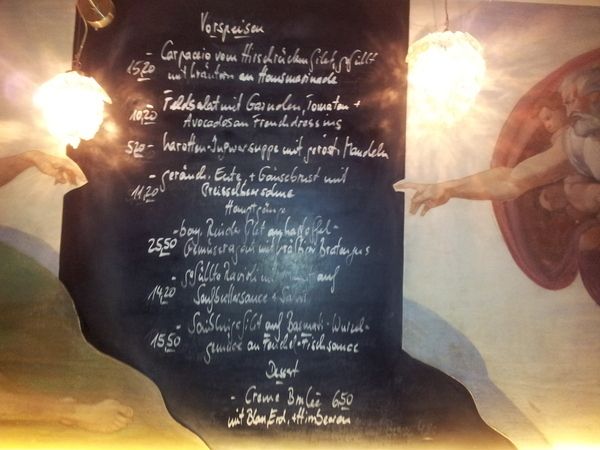 Vorspeisen
- Carpaccio vom Hirschrückenfilet gefüllt
15,20 mit Kräutern an Hausmarinade
- Feldsalat mit Garnelen, Tomaten +
10,20 Avocados an Frenchdressing
5,20 - Karotten-Ingwersuppe mit geröst. Mandeln
- geräuch. Ente, + Gänsebrust mit
11,20 Preisselbeersahne
Hauptgänge
- Filet an Kartoffel-
25,50 Gemüseragout mit Bratenjus
- gefüllte Ravioli mit auf
14,20 + Salat
- auf Basmati-Wurzel-
15,50 gemüse an Fenchel-Fischsauce
Dessert
- Creme Brulée 6,50
mit Blau, Erd, + Himbeeren